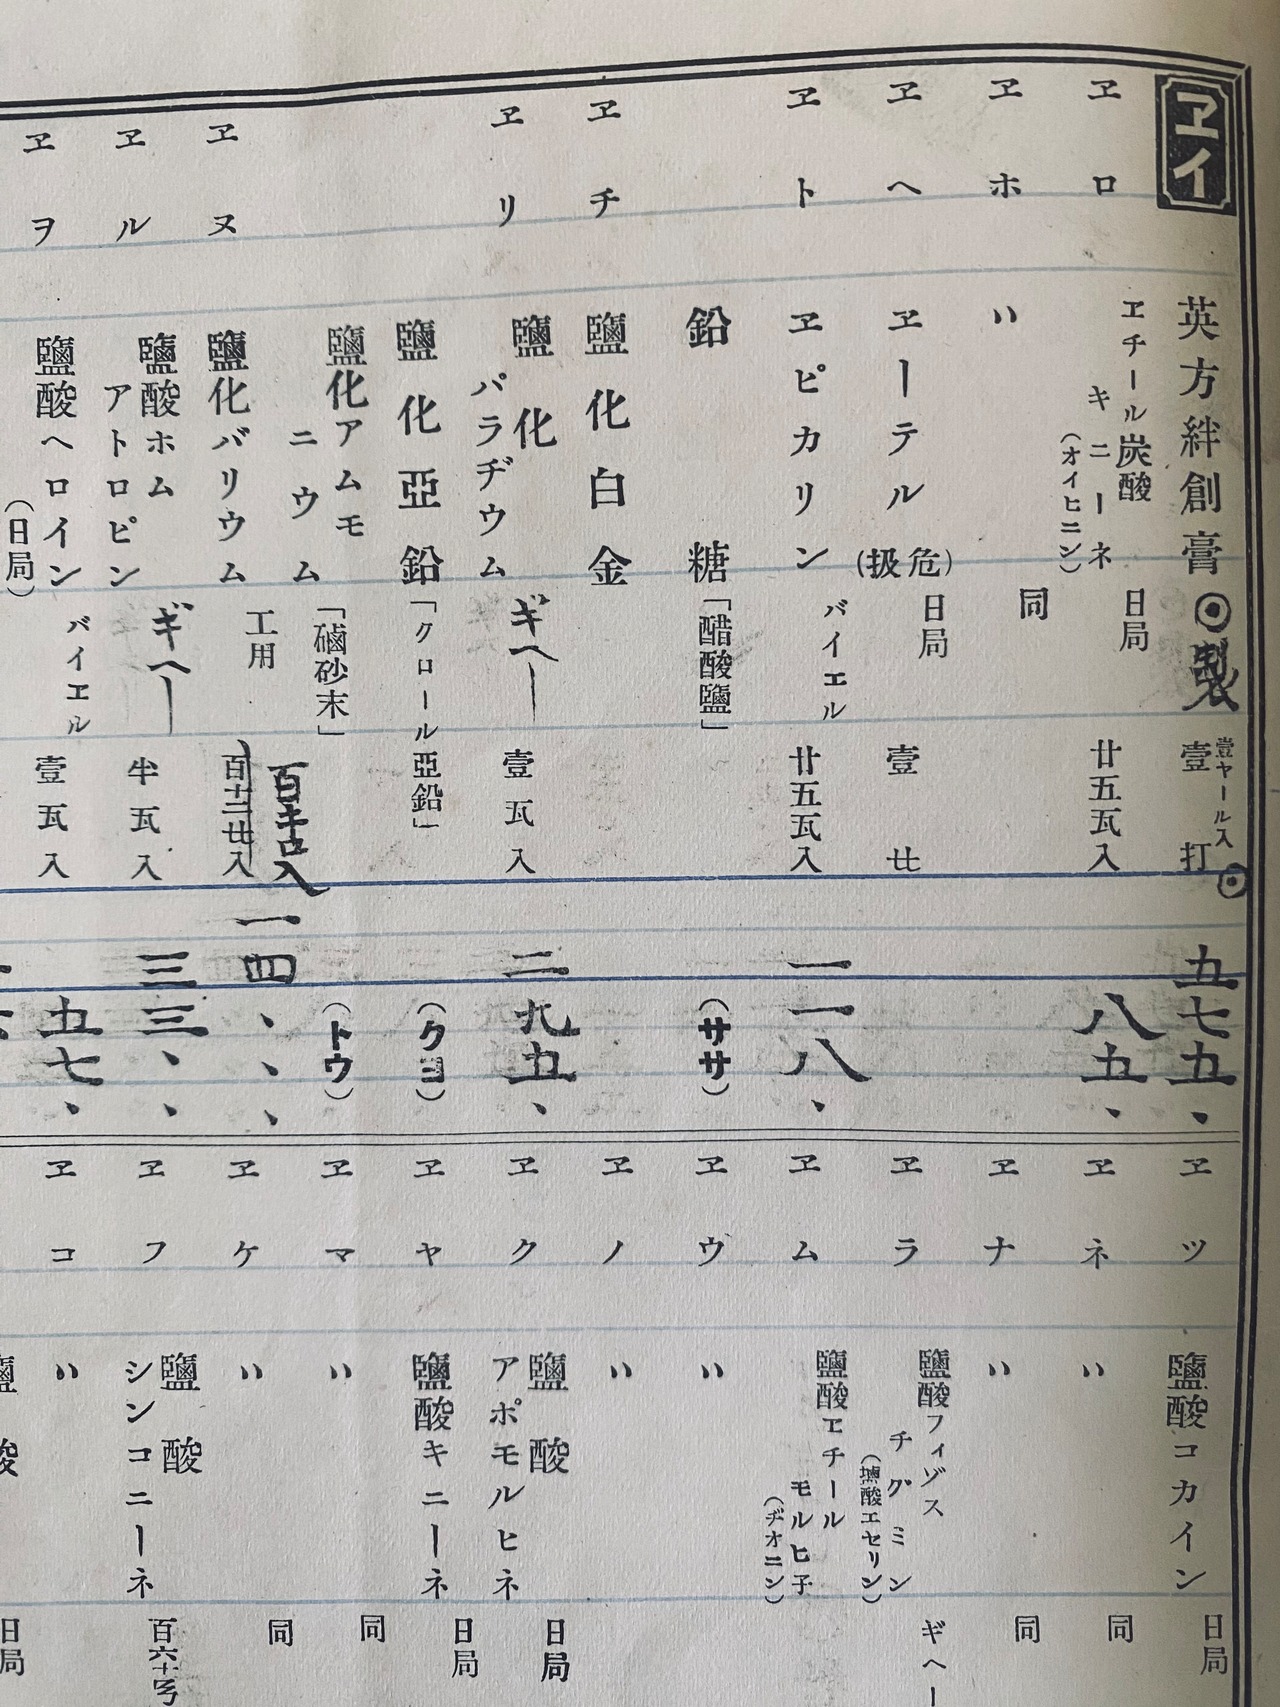 ヱイ
英方絆創膏
◉製
壹ヤール入
壹打
五七五、
ヱロ
ヱチール炭酸
キニーネ
(オイヒニン)
日局
廿五瓦入
八五、
ヱホ
〃
同
ヱヘ
ヱーテル
(危扱)
日局
壹
ヱト
ヱピカリン
バイエル
廿五瓦入
一一八、
鉛糖
「醋酸鹽」
(ササ)
ヱチ
鹽化白金
ヱリ
鹽化
パラヂウム
ギヘー
壹瓦入
二九五、
鹽化亞鉛
「クロール亞鉛」
(クヨ)
鹽化アムモ
ニウム
「磠砂末」
(トウ)
ヱヌ
鹽化バリウム
工用
百キロ入
一四、、、
ヱル
鹽酸ホム
アトロピン
ギヘー
半瓦入
三三、、
ヱヲ
鹽酸ヘロイン
(日局)
バイエル
壹瓦入
五七、
ヱツ
鹽酸コカイン
日局
ヱネ
〃
同
ヱナ
〃
同
ヱラ
鹽酸フィゾス
チグミン
(鹽酸エセリン)
ギヘー
ヱム
鹽酸ヱチール
モルヒ子
(ヂオニン)
ヱウ
〃
ヱノ
〃
ヱク
鹽酸
アポモルヒネ
日局
ヱヤ
鹽酸キニーネ
日局
ヱマ
〃
同
ヱケ
〃
同
ヱフ
鹽酸
シンコニーネ
百六十号
ヱコ
〃
鹽酸
日局